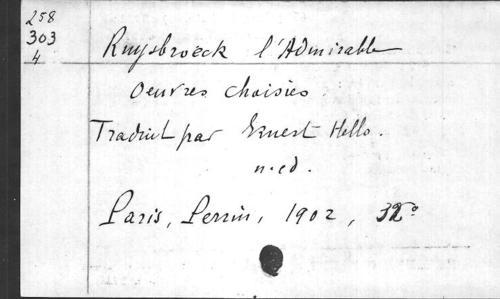 258
303
4
Ruysbroeck l'Admirable
Oeuvres choisies
Traduit par Ernest Hello.
n. ed.
Paris, Perrin, 1902, 32°